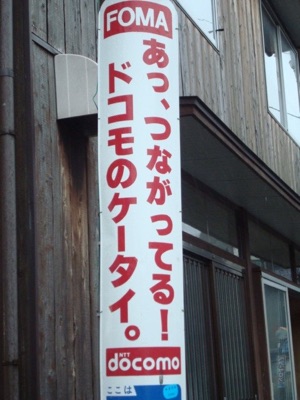 FOMA
あっ、つながってる!
ドコモのケータイ。
NTT
docomo
ここは